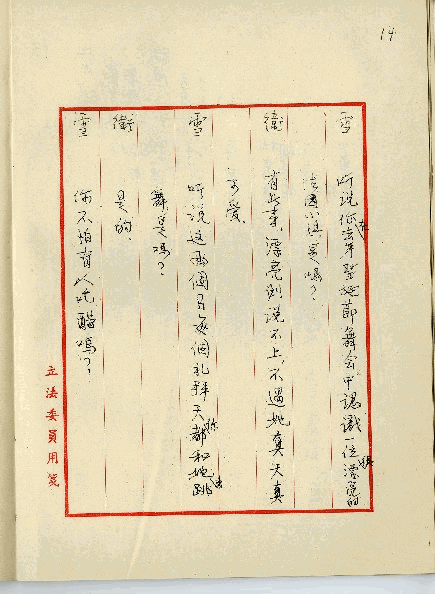 14
雪 听说你在去年聖誕節舞会中認識一位漂亮的
法國小姐是嗎？
衛 有此事，漂亮倒说不上，不過她真天真
可愛。
雪 听说这兩個月每個礼拜天你都和她去跳
舞是嗎？
衛 是的。
雪 你不怕有人吃醋嗎？
立法委員用箋